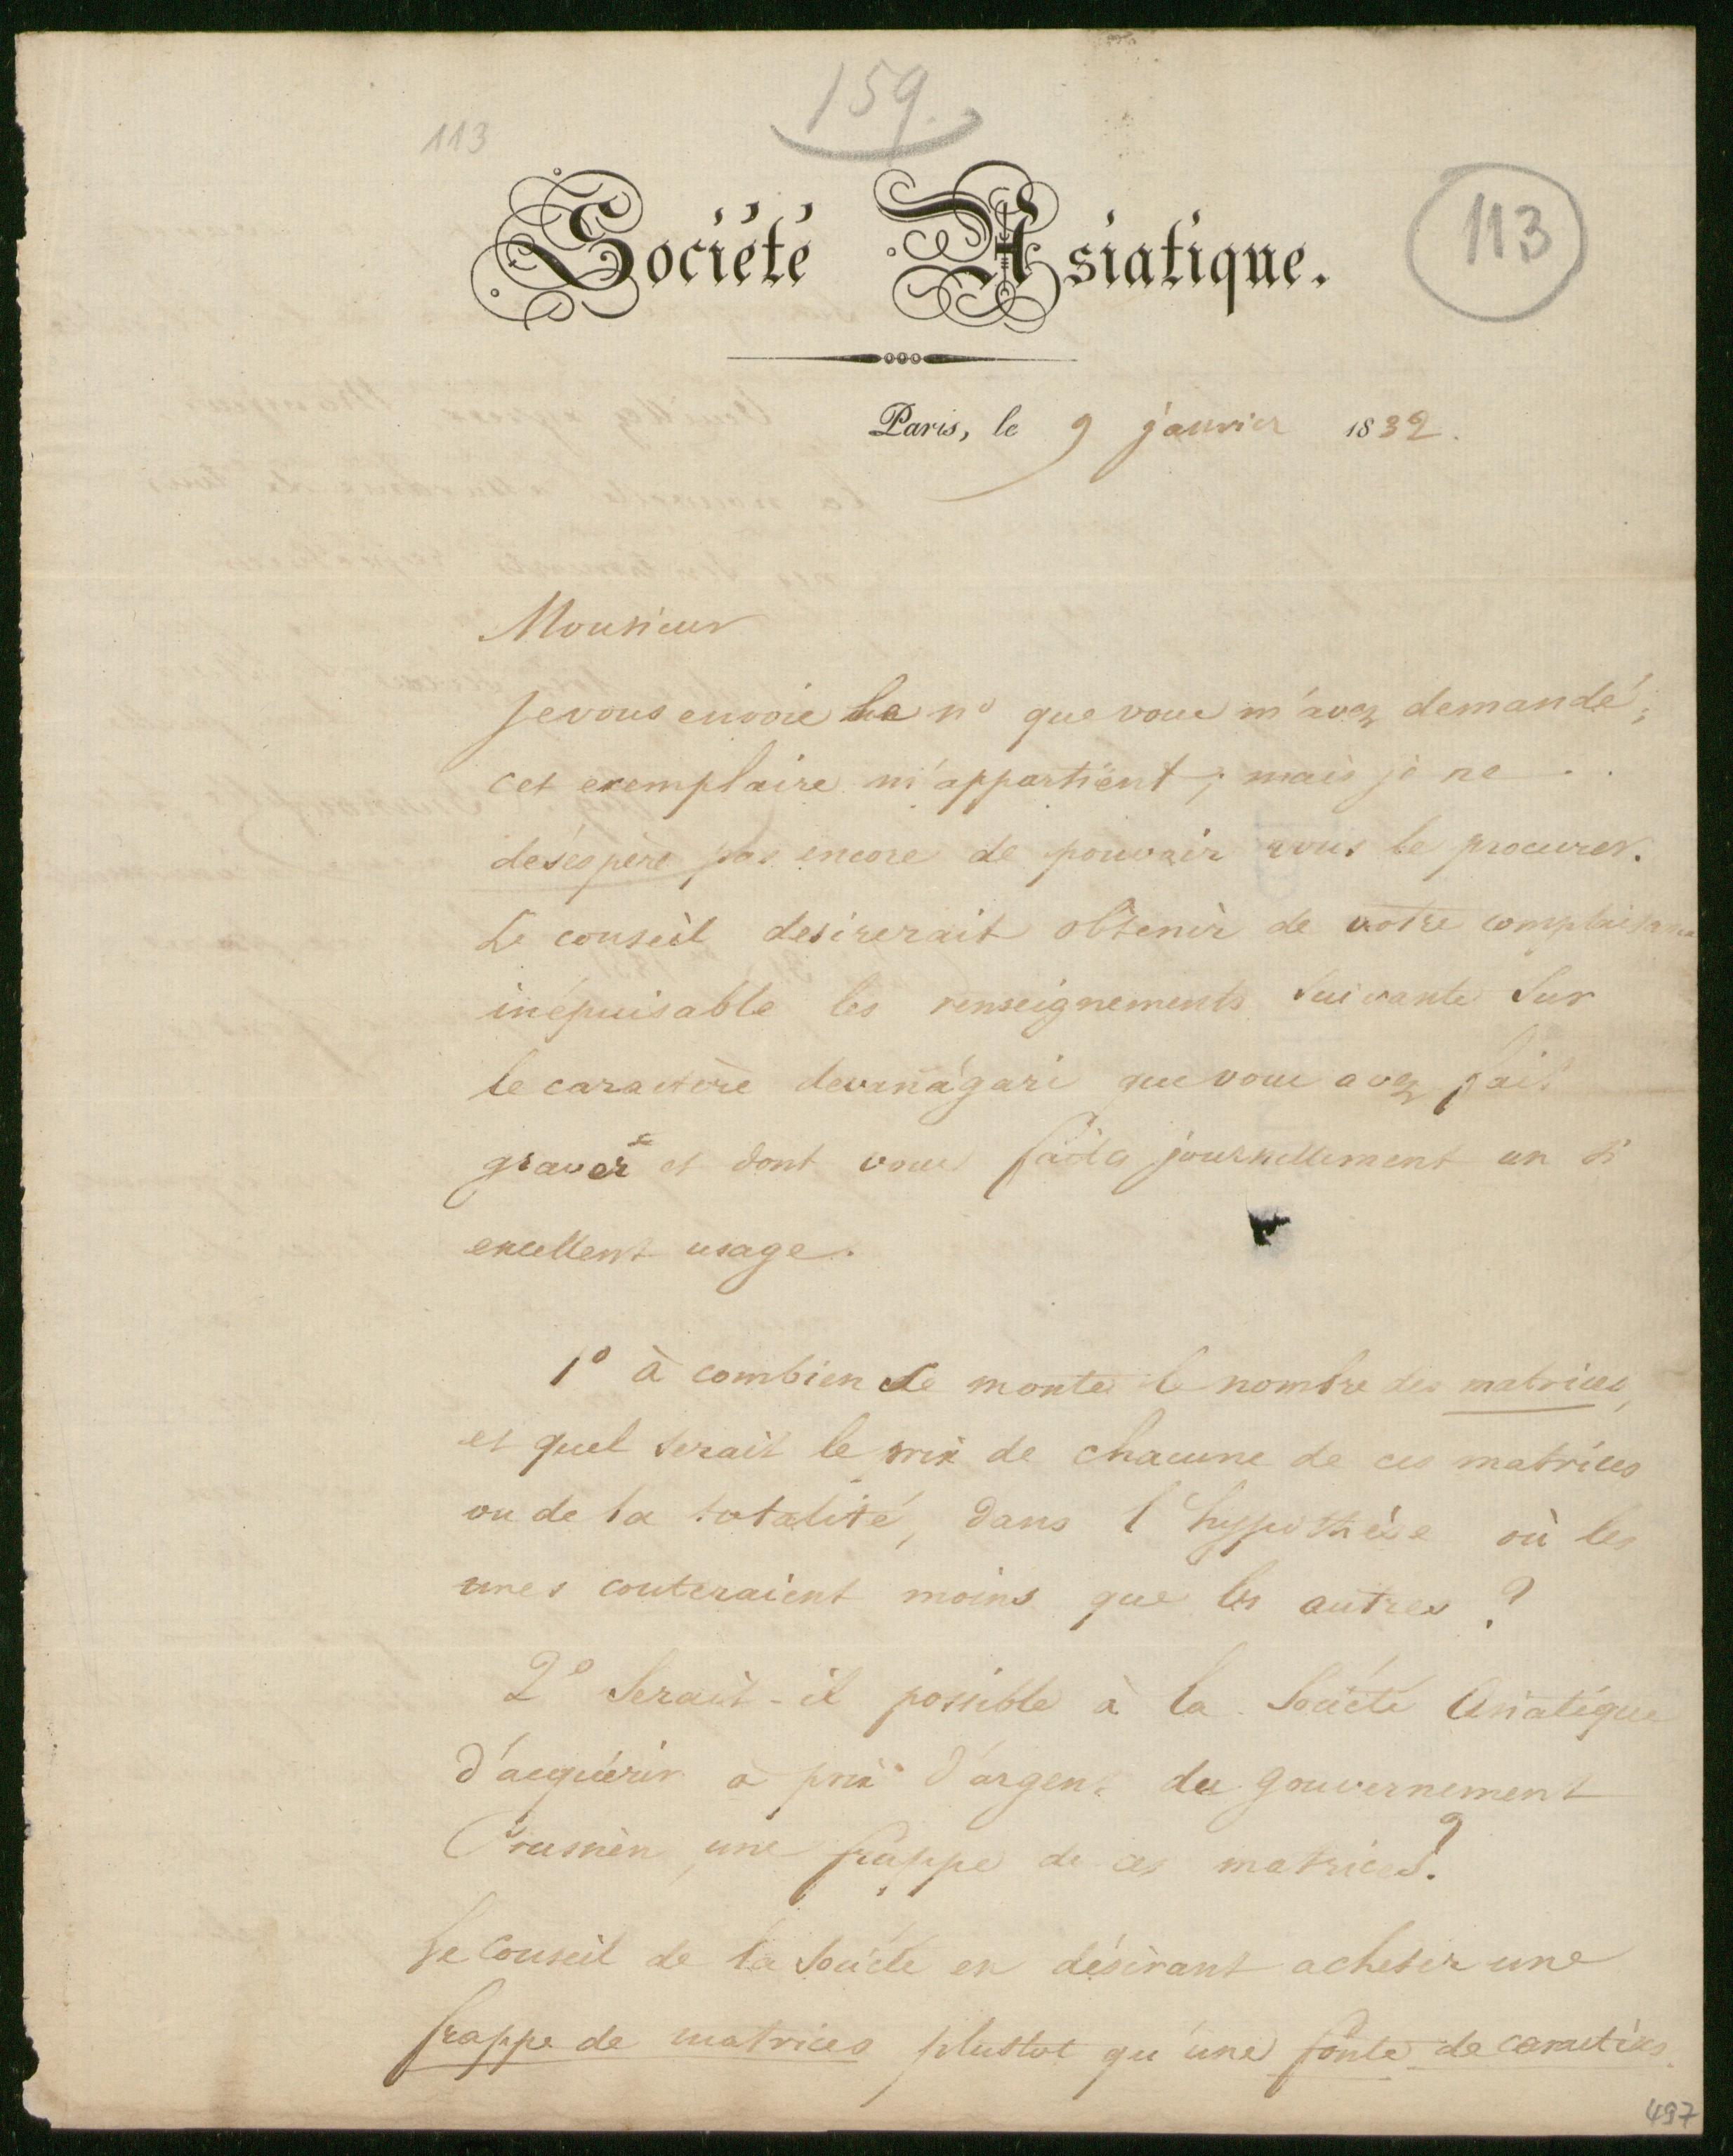 159.
113
Société Asiatique.
113
Paris, le 9 janvier 1832.
Monsieur
Je vous envoie le no que vous m'avez demandé;
cet exemplaire m'appartient; mais je ne
désespère pas encore de pouvoir vous le procurer.
Le conseil desirerait obtenir de votre complaisance
inépuisable les renseignements suivants sur
le caractère devanâgari que vous avez fait
graver et dont vous faites journellement un si
excellent usage.
1o à combien se monte le nombre des matrices,
et quel serait le prix de chacune de ces matrices
ou de la totalité, dans l'hypothèse où les
unes couteraient moins que les autres ?
2o Serait-il possible à la Société Asiatique
d'acquérir à prix d'argent du gouvernement
Prussien, une frappe de ces matrices?
Le Conseil de la Société en désirant acheter une
frappe de matrices plustot qu'une fonte de caractères
497